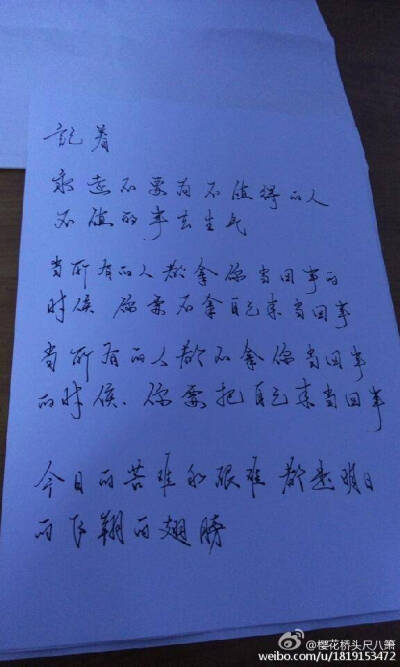 記着
永远不要为不值得的人
不值的事去生气
当所有的人都拿你当回事的
时候 你要不拿自己来当回事
当所有的人都不拿你当回事
的时候、你要把自己来当回事
今日的苦难和艰难 都是明日
的飞翔的翅膀
@樱花桥头尺八箫
weibo.com/u/1819153472